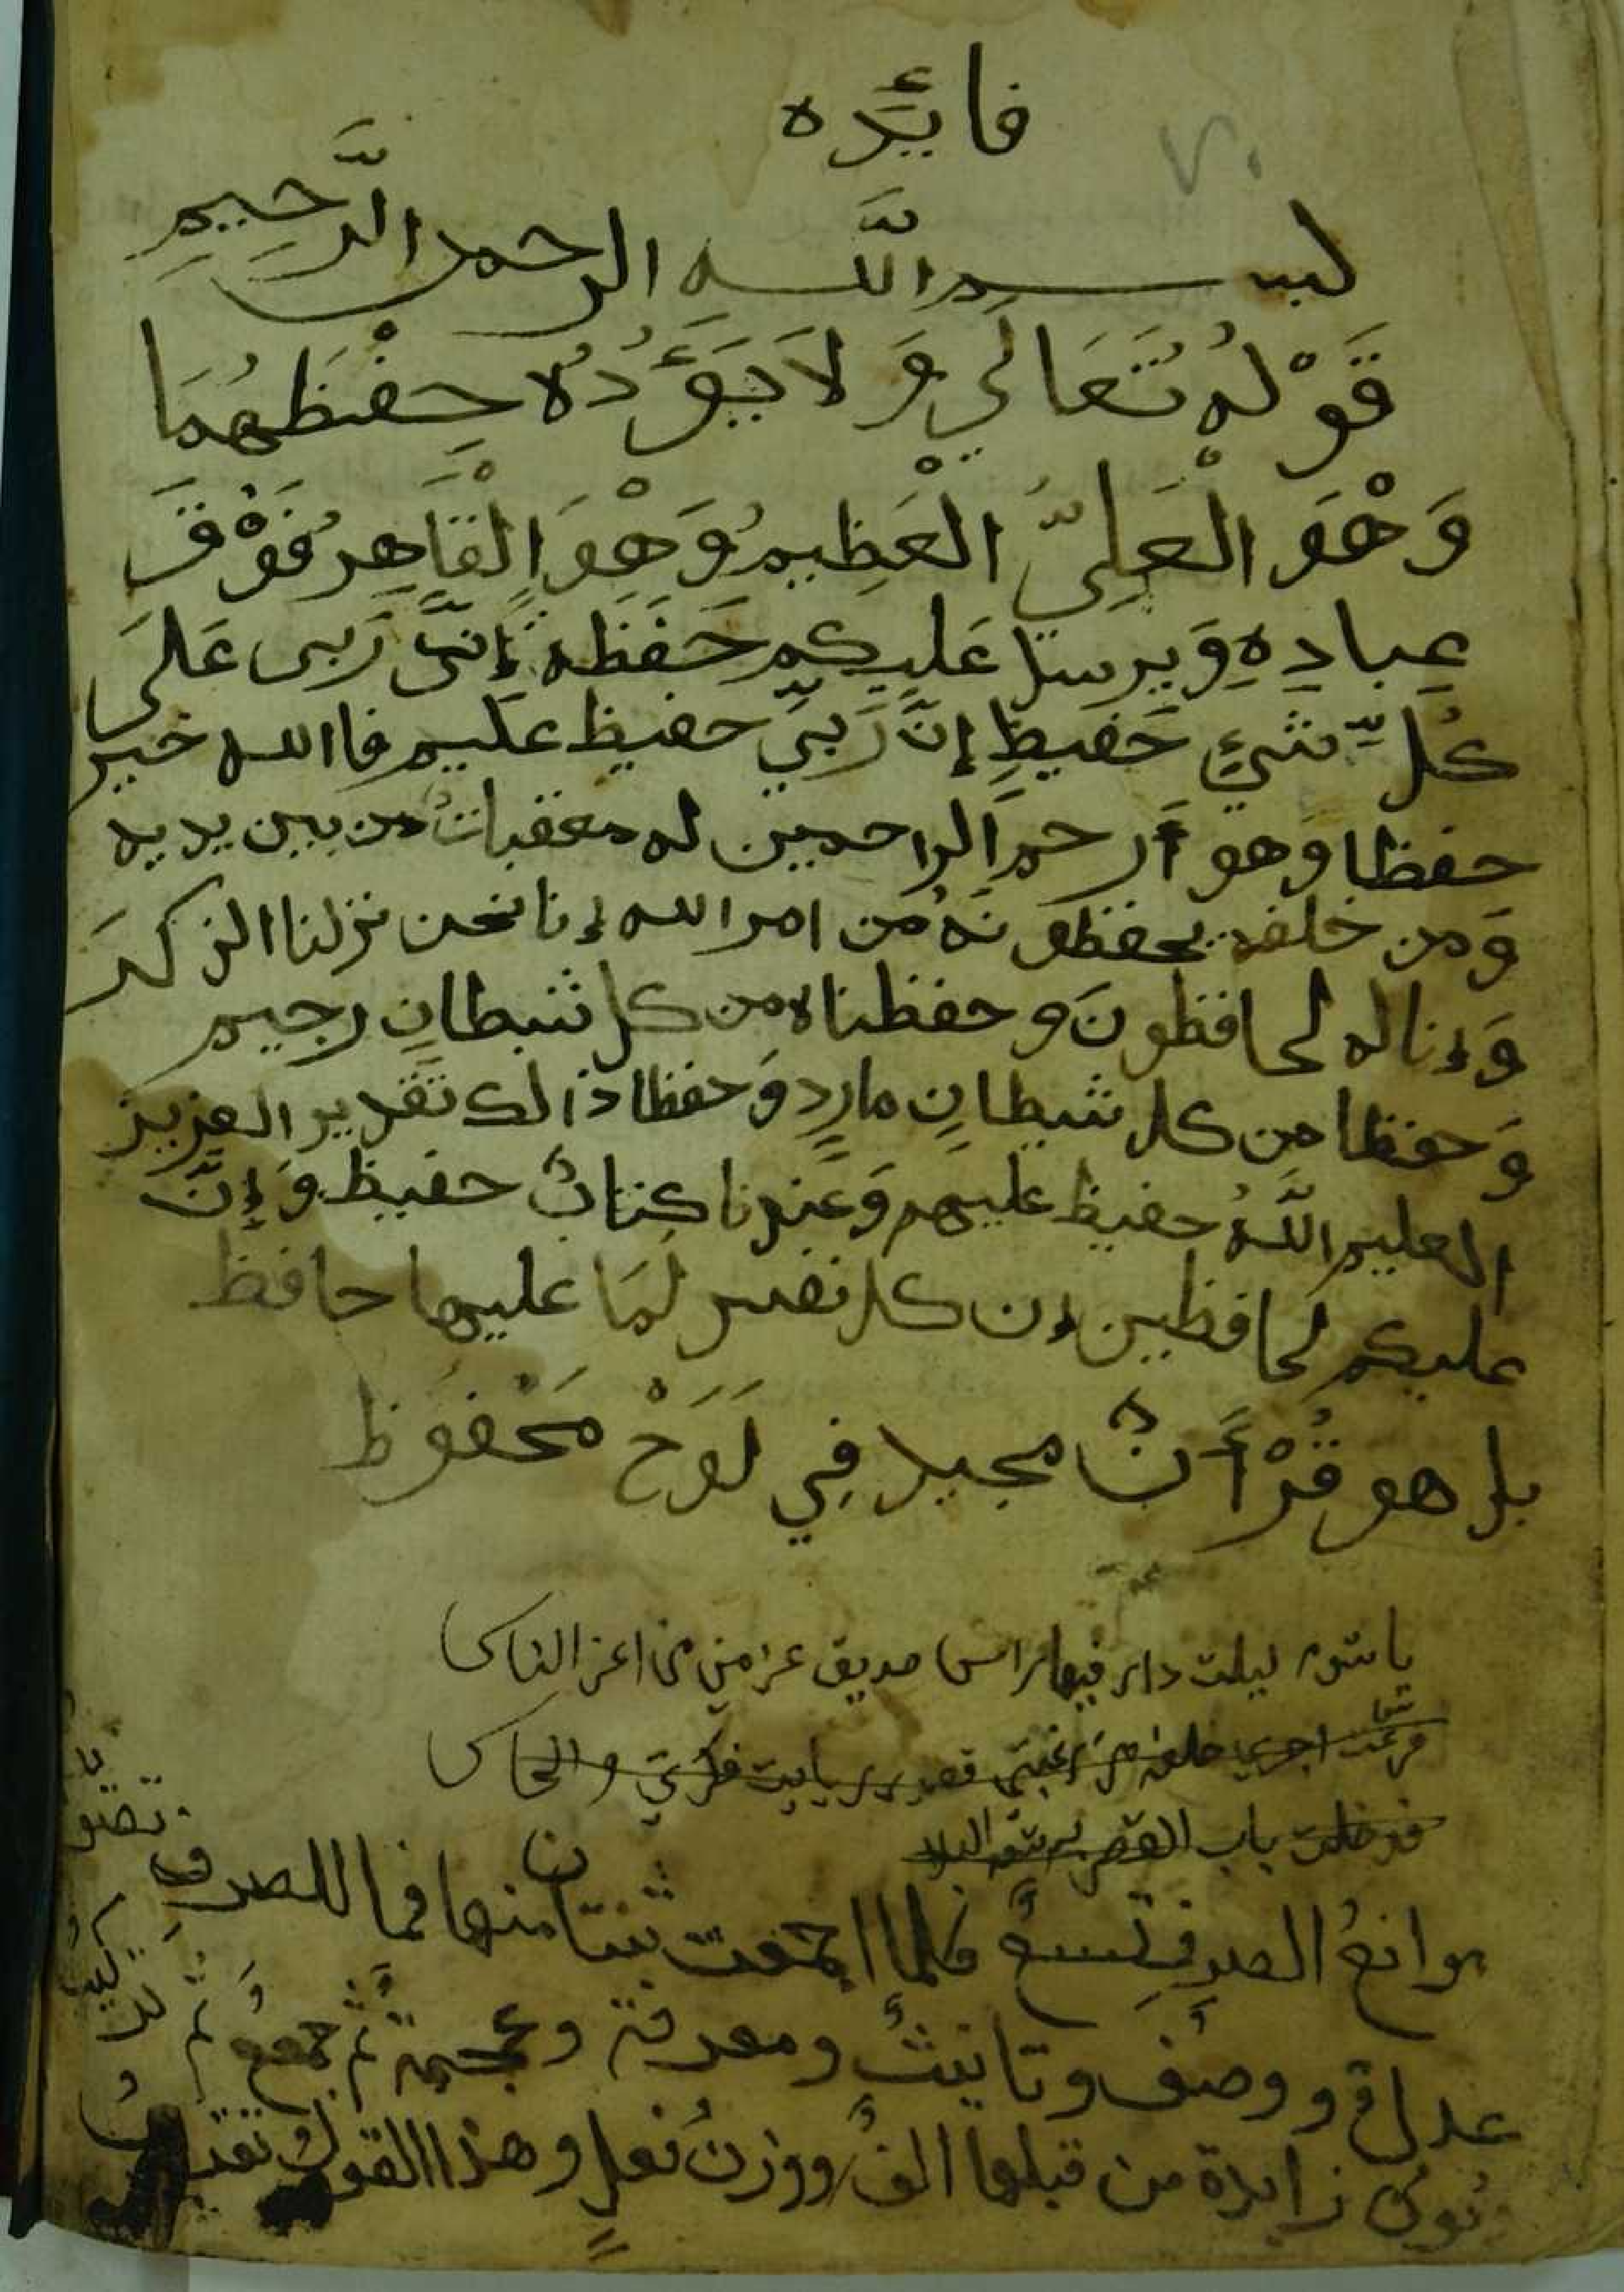 فايئده
٧٠
بسم الله الرحمن الرَّحِيمِ
قَوْلُهُ تَعَالَي وَلَا يَـُٔودُهُ حِفْظَهُمَا
وَهْوَ الْعَلِيُّ الْعَظِيمُ وَهْوَ الْقَاهِرُ فَوْقَ
عِبادِهِ وَيرسل عَليكم حَفَظَه إنَّ رَبى عَلَى
كُلِّ شيءٍ حَفيظٍ إنَّ رَبيَ حفيظ عليم فاالله خير
حفظا وَهو أرحم الراحمين له معقباتُ من بين يديه
وَمن خلفه يحفظونَهُ من امر الله إنا نحن نزلنا الذكر
وَإنا له لحافظونَ وحفظناه من كل شيطانِ رجيم
وَحفظا من كل شيطانِ مارِدٍ وَحفظا ذالك تَقدير العزيز
العليم اللَّهُ حفيظ عليهم وَعندنا كتابٌ حفيظ وَإنَّ
عليكم لحافظين إن كل نفس لَمَا عليها حافظ
بل هو قُرْأَنٌ مجيد فِي لَوَحْ مَحْفوظ
دار فيها صديق عز من اعز الناس
اجري
باب القصر
موانعُ الصرفِ تسعٌ فلما اجتمعت ثنتان منها فما للصرف تصويب
عدل ووصف وتانيثٌ ومعرفة وعجمة ثم جمعٌ ثم تركيبُ
نونٌ زايدة من قبلها الفٌ ووزنُ فعلٍ وهذا القولُ تقريبُ